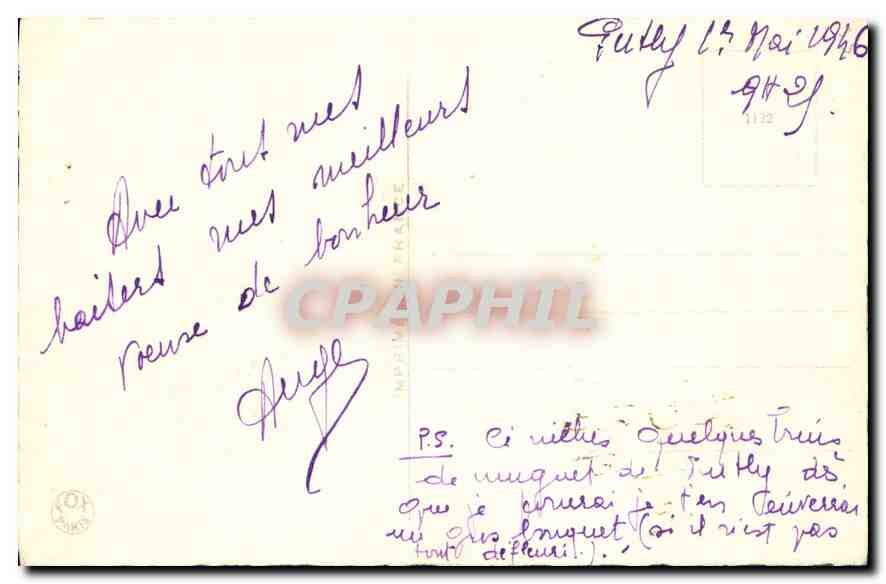 Putly 1er Mai 1946
9H25
1132
Avec tout mes
mes meilleurs
baisers mes
voeuse de bonheur
Ange
IMPRIMÉ EN FRANCE
CPAPHIL
P.S. Ci quelques brins
de muguet de Putly dès
que je pourai je t'en enverrai
un gros bouquet (si il n'est pas
tout defleuri..).
FOX
PARIS